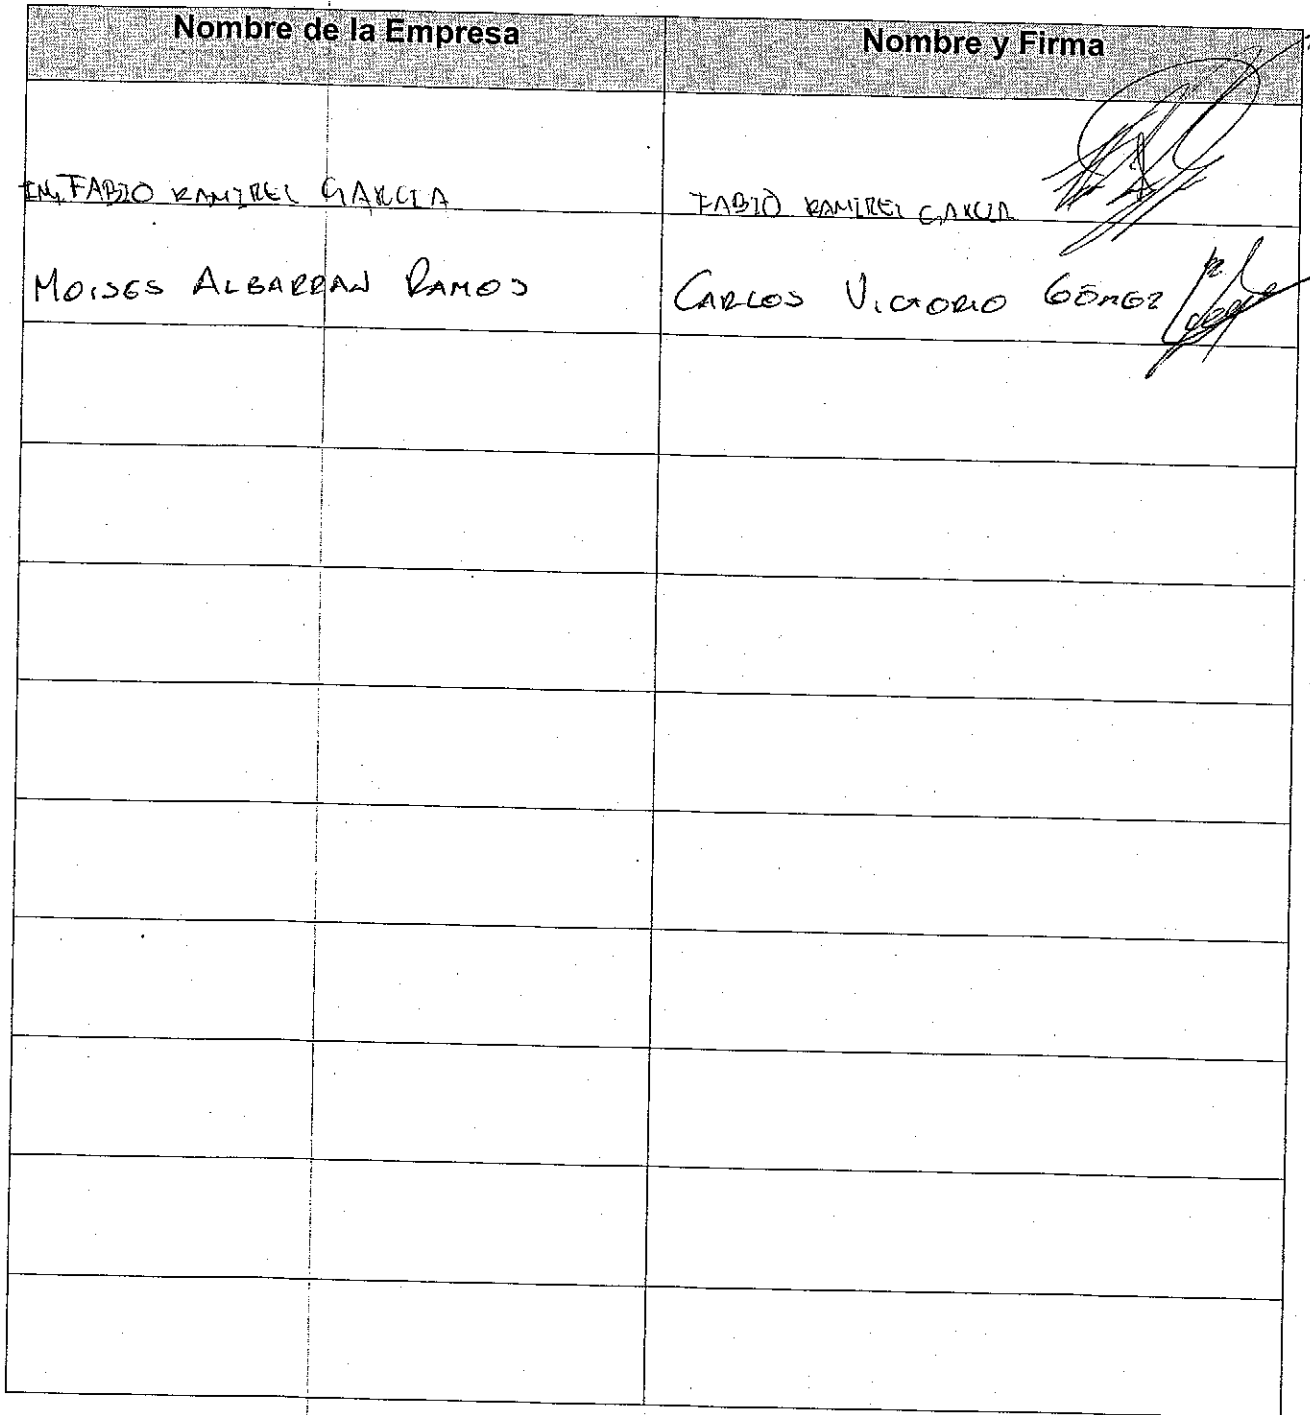 Nombre de la Empresa
Nombre y Firma
ING. FABIO RAMIREZ GARCIA
FABIO RAMIREZ GARCIA
MOISES ALBARRAN RAMOS
CARLOS VICTORIO GÓMEZ